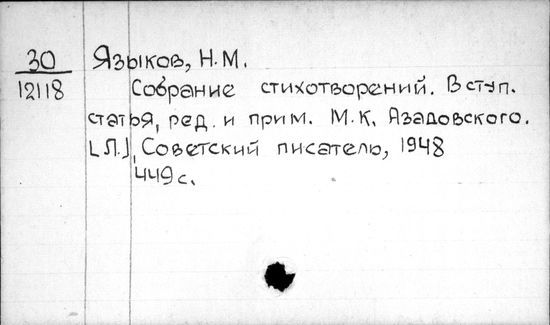 30 Языков, Н.М.
12118 Собрание стихотворений. Вступ.
статья, ред. и прим. М.К. Азадовского.
[Л.], Советский писатель, 1948
449 с.